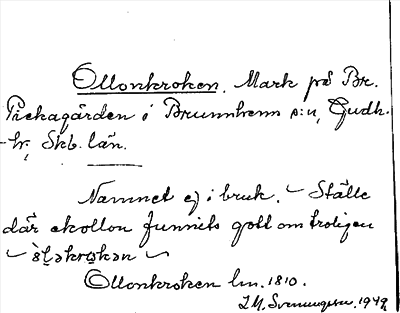 Ollonkroken. Mark på Br.
Pickagården i Brunnhems s:n, Gudh.
hr, Skb. län.
Namnet ej i bruk. Ställe
där ekollon funnits gott om troligen
Ollonkroken lm. 1810.
1949